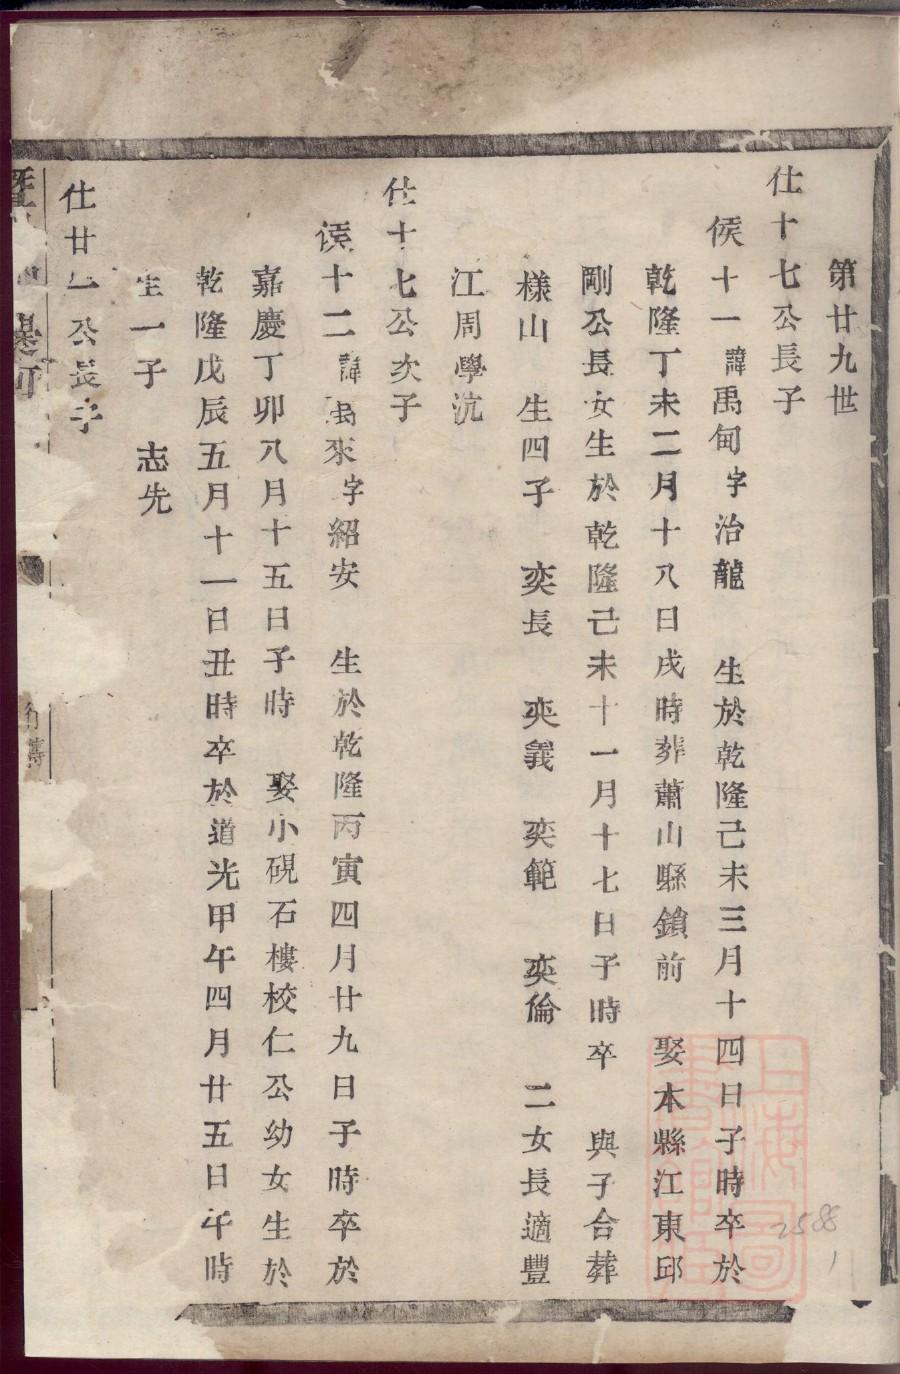 第廿九世
仕十七公長子
侯十一諱禹甸字治龍 生於乾隆己未三月十四日子時卒於
乾隆丁未二月十八日戌時葬蕭山縣鎖前 娶本縣江東邱
剛公長女生於乾隆己未十一月十七日子時卒 與子合葬
樣山 生四子 奕長 奕義 奕範 奕倫 二女長適豐
江周學沆
仕十七公次子
侯十二諱禹來字紹安 生於乾隆丙寅四月廿九日子時卒於
嘉慶丁卯八月十五日子時 娶小硯石樓校仁公幼女生於
乾隆戊辰五月十一日丑時卒於道光甲午四月廿五日午時
生一子 志先
仕廿一公長子
上海圖書館藏
2588